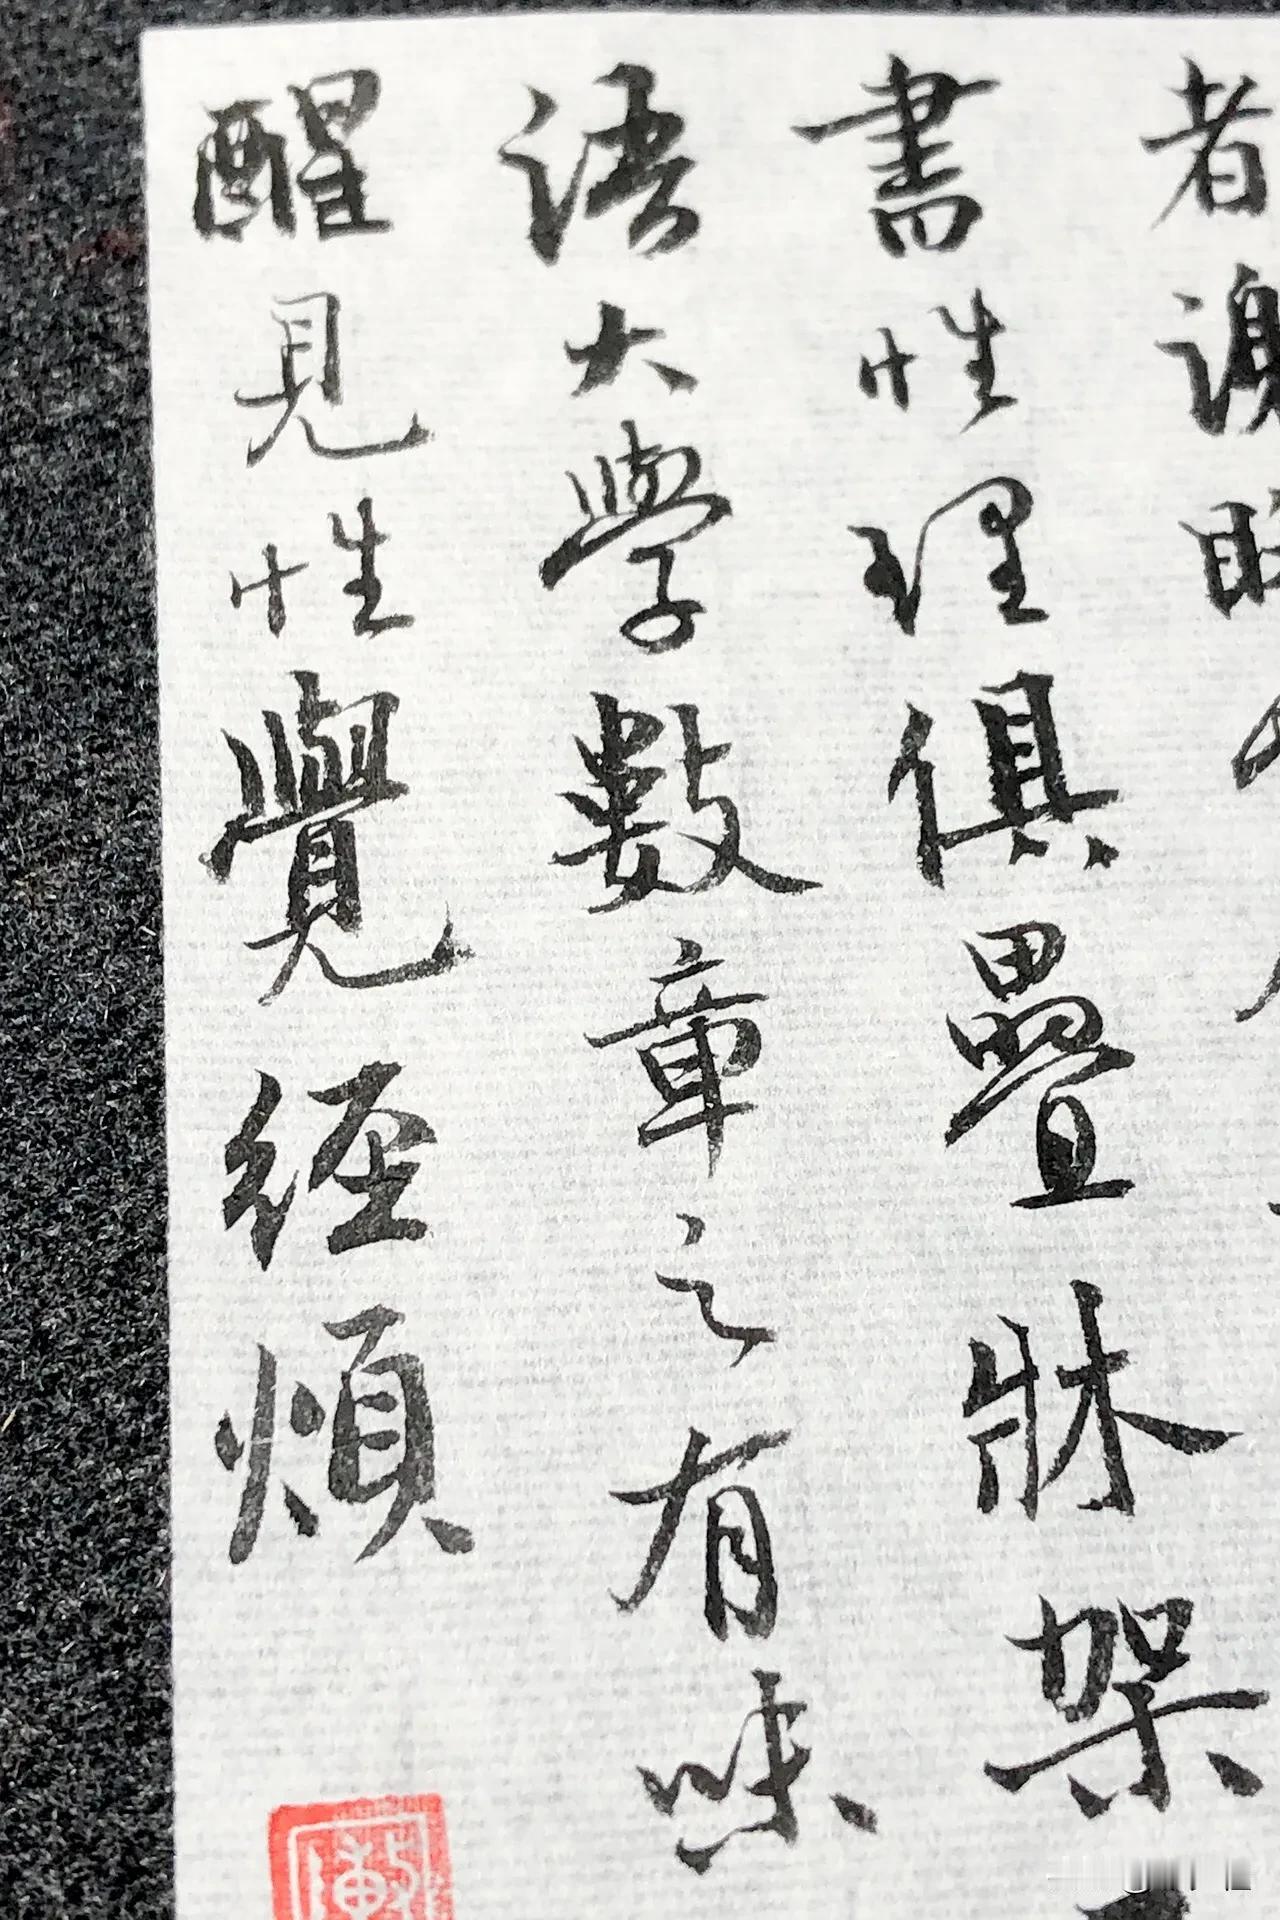 者謝眺
書性理俱疊牀架
語大學數章之有味
醒見性覺經煩